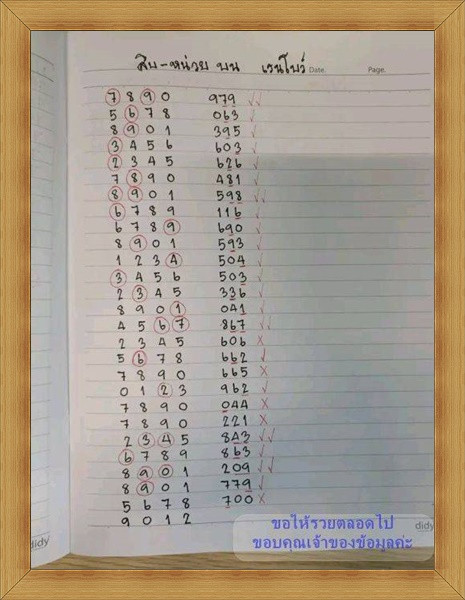 สิบ-หน่วย บน เรนโบว์ Date. Page.
7 8 9 0 979 ✓✓
5 6 7 8 063 ✓
8 9 0 1 395 ✓
3 4 5 6 603 ✓
2 3 4 5 626 ✓
7 8 9 0 481 ✓
8 9 0 1 598 ✓✓
6 7 8 9 116 ✓
6 7 8 9 690 ✓
8 9 0 1 593 ✓
1 2 3 4 504 ✓
3 4 5 6 503 ✓
2 3 4 5 336 ✓
8 9 0 1 041 ✓
4 5 6 7 867 ✓✓
2 3 4 5 606 X
5 6 7 8 662 ✓
7 8 9 0 665 X
0 1 2 3 962 ✓
7 8 9 0 044 X
7 8 9 0 221 X
2 3 4 5 843 ✓✓
6 7 8 9 863 ✓
8 9 0 1 209 ✓✓
8 9 0 1 779 ✓
5 6 7 8 700 X
9 0 1 2
ขอให้รวยตลอดไป
ขอบคุณเจ้าของข้อมูลค่ะ
didy
didy